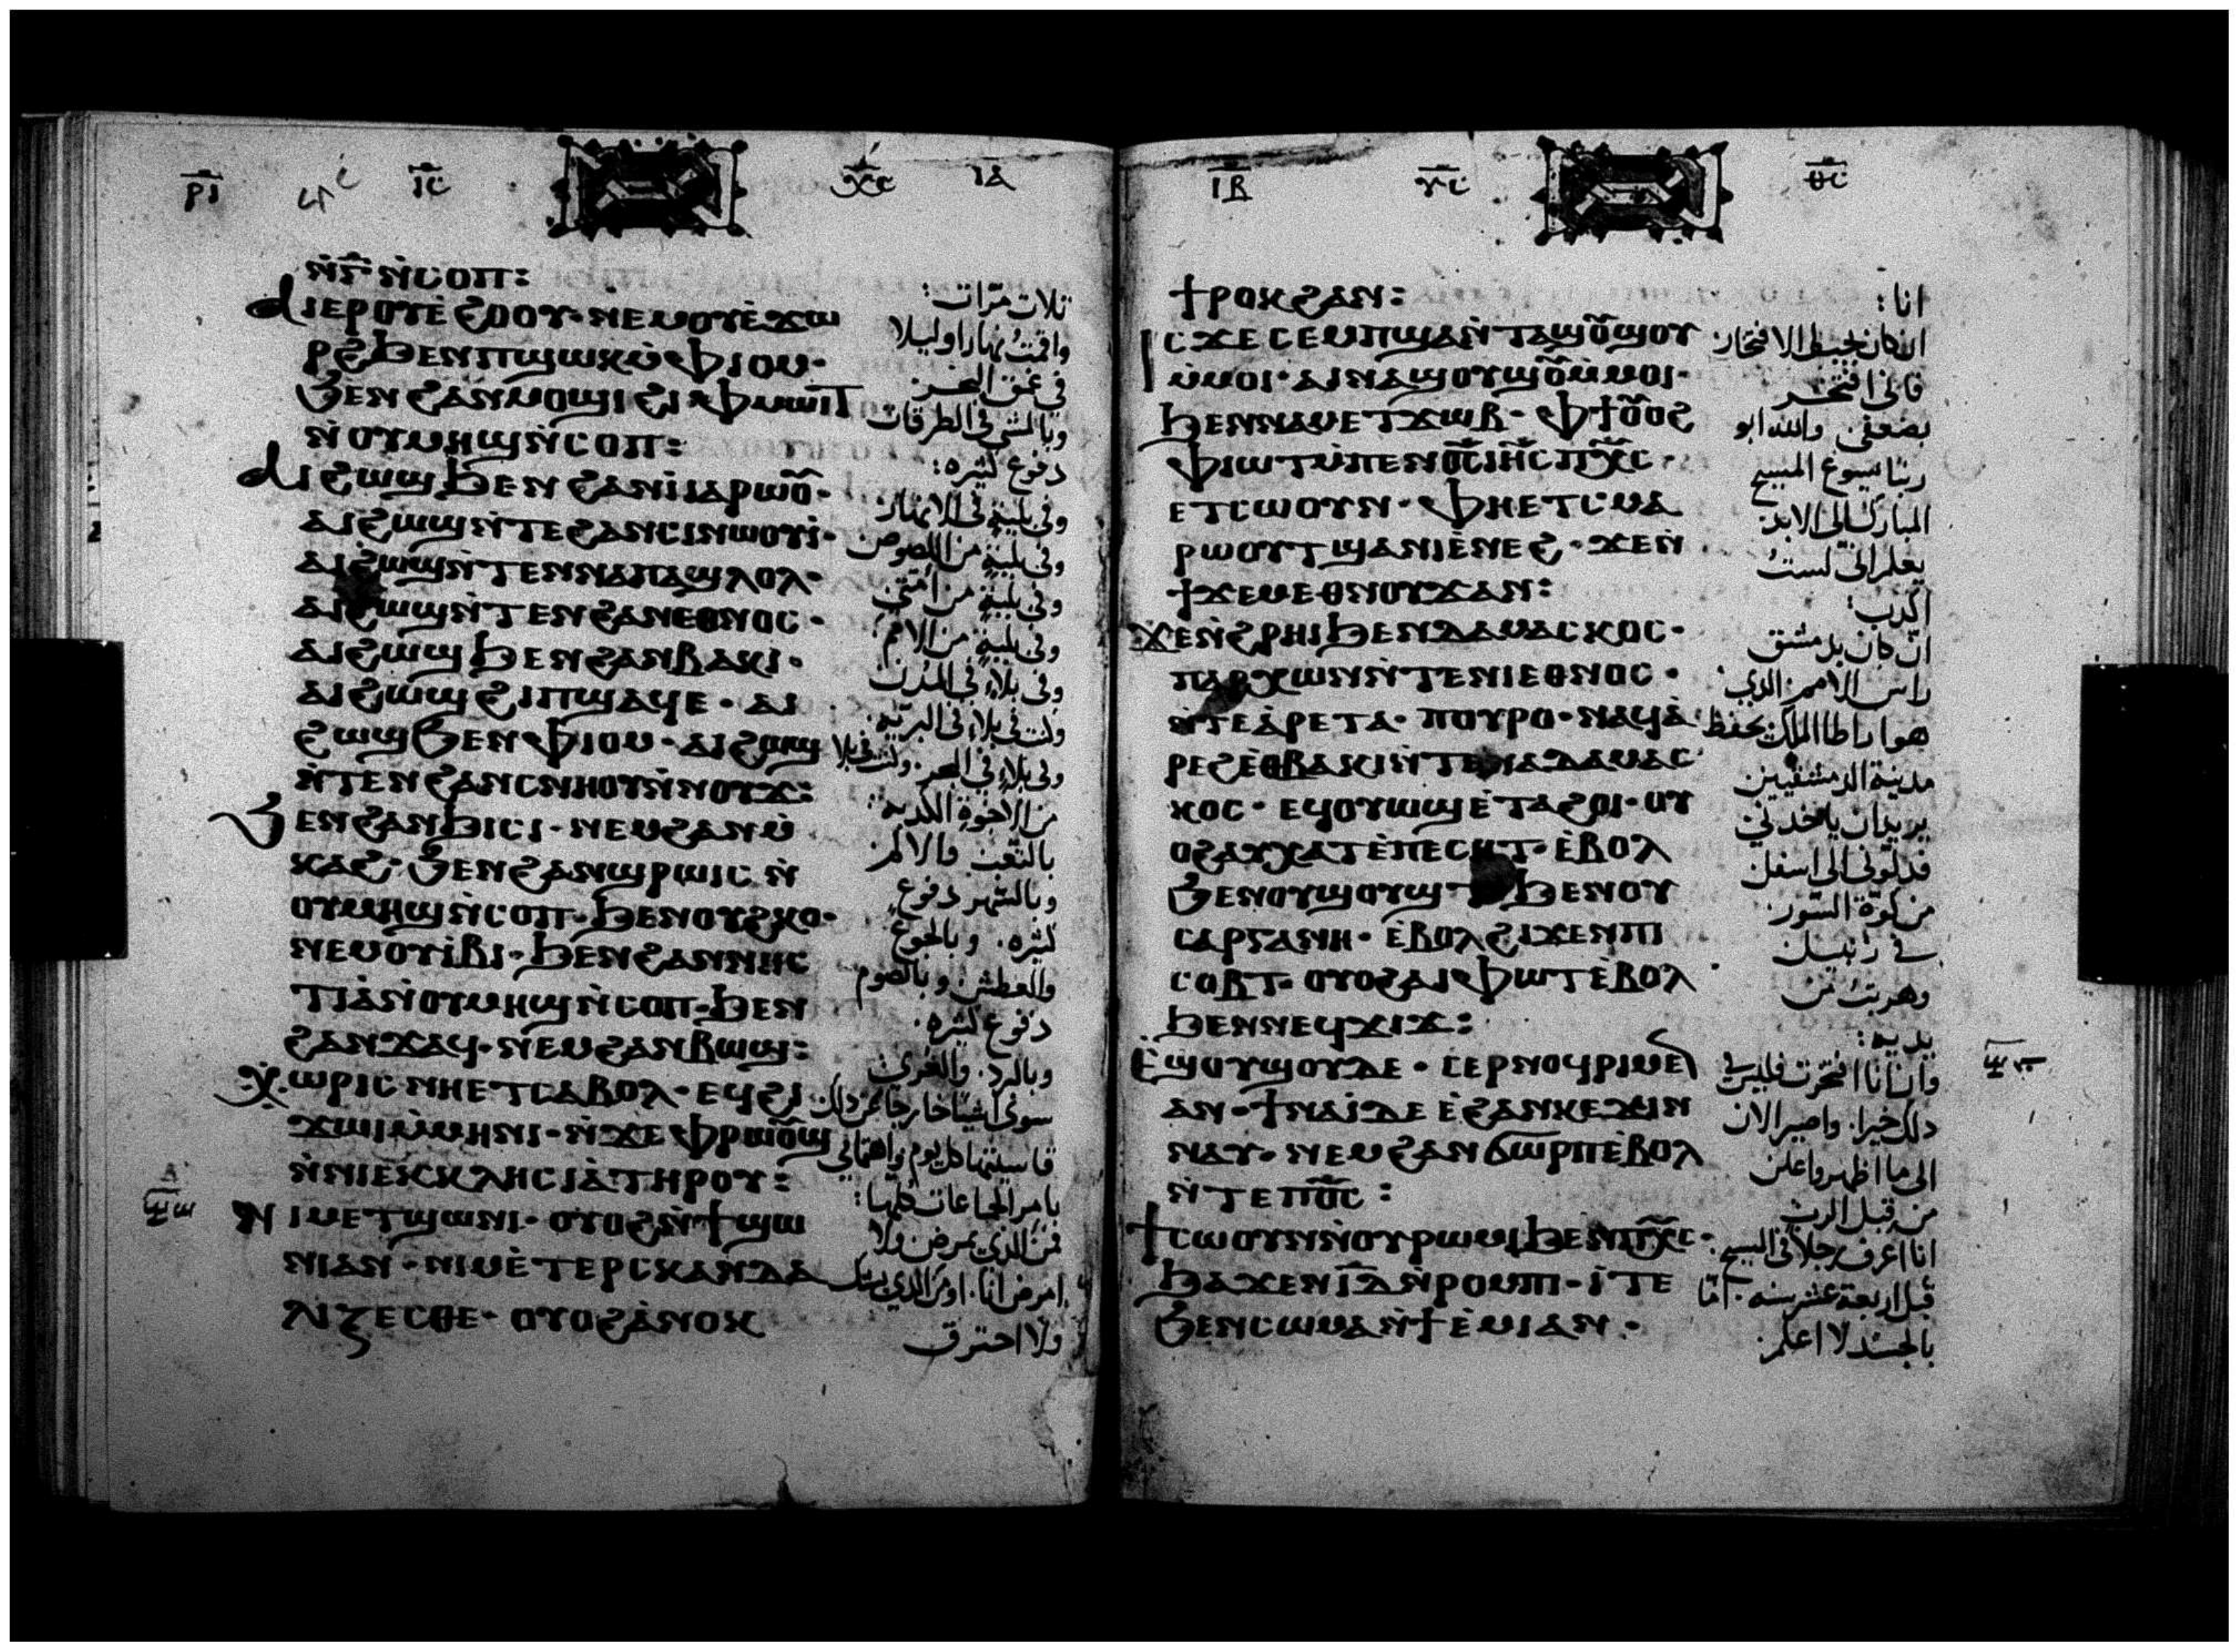 ⲓ̅ⲥ̅ ⲭ̅ⲥ̅ ⲓ̅ⲁ̅
ⲛ̀ⲅ̅ ⲛ̀ⲥⲟⲡ:
ⲁⲓⲉⲣⲟⲩⲉ̀ϩⲟⲟⲩ· ⲛⲉⲙⲟⲩⲉ̀ϫⲱ
ⲣϩ ϧⲉⲛⲡϣⲱⲕⲙ̀ⲫⲓⲟⲙ·
ϧⲉⲛϩⲁⲛⲙⲟϣⲓ ϩⲓ ⲫⲙⲱⲓⲧ
ⲛ̀ⲟⲩⲙⲏϣⲛ̀ⲥⲟⲡ:
ⲁⲓϩⲱϣ ϧⲉⲛ ϩⲁⲛⲓⲁⲣⲱⲟ̅ⲩ̅·
ⲁⲓϩⲱϣⲛ̀ⲧⲉϩⲁⲛⲥⲓⲛⲱⲟⲩⲓ̀·
ⲁⲓϩⲱϣⲛ̀ⲧⲉⲛⲛⲁⲡⲁϣⲗⲟⲗ·
ⲁⲓϩⲱϣⲛ̀ⲧⲉⲛϩⲁⲛⲉⲑⲛⲟⲥ·
ⲁⲓϩⲱϣ ϧⲉⲛϩⲁⲛⲃⲁⲕⲓ·
ⲁⲓϩⲱϣ ϩⲓⲡϣⲁϥⲉ· ⲁⲓ
ϩⲱϣ ϧⲉⲛ ⲫⲓⲟⲙ· ⲁⲓϩⲱϣ
ⲛ̀ⲧⲉⲛϩⲁⲛⲥⲛⲏⲟⲩⲛ̀ⲛⲟⲩϫ:
ϧⲉⲛϩⲁⲛϧⲓⲥⲓ· ⲛⲉⲙϩⲁⲛⲙ̀
ⲕⲁϩ· ϧⲉⲛϩⲁⲛϣⲣⲱⲓⲥ ⲛ̀
ⲟⲩⲙⲏϣⲛ̀ⲥⲟⲡ· ϧⲉⲛⲟⲩϩⲕⲟ·
ⲛⲉⲙⲟⲩⲓ̀ⲃⲓ· ϧⲉⲛϩⲁⲛⲛⲏⲥ
ⲧⲓⲁ̀ⲛ̀ⲟⲩⲙⲏϣⲛ̀ⲥⲟⲡ· ϧⲉⲛ
ϩⲁⲛϫⲁϥ· ⲛⲉⲙϩⲁⲛⲃⲱϣ:
ⲭⲱⲣⲓⲥ ⲛⲏⲉⲧⲥⲁⲃⲟⲗ· ⲉϥϩⲓ
ϫⲱⲓⲙ̀ⲙⲏⲛⲓ· ⲛ̀ϫⲉ ⲫⲣⲱⲟ̅ⲩ̅ϣ
ⲛ̀ⲛⲓⲉⲕⲕⲗⲏⲥⲓⲁ̀ⲧⲏⲣⲟⲩ:
ⲛⲓⲙⲉⲧϣⲱⲛⲓ· ⲟⲩⲟϩⲛ̀ϯϣⲱ
ⲛⲓⲁⲛ· ⲛⲓⲙⲉ̀ⲧⲉⲣⲥⲕⲁⲛⲇⲁ
ⲗⲓⲍⲉⲥⲑⲉ· ⲟⲩⲟϩⲁ̀ⲛⲟⲕ
ثلاث مرات:
واقمت نهارا وليلا
في عمق البحر
وبالمشي في الطرقات
دفوع كثيره:
وفي بلية في الانهار
وفي بلية من اللصوص
وفي بلية من امتي
وفي بلية من الامم
وفي بلاء في المدن
ولت في بلاء في البرية
وفي بلاء في البحر· ولت في بلا
من الاخوة الكدبة
بالتعب والالم
وبالسهر دفوع
كثيره· وبالجوع
والعطش وبالصوم
دفوع كثيره·
وبالبرد· والعري
سوى اشيا خارجا عن دلك
بامر الجماعات كلها:
فمن الذي يمرض ولا
امرض انا· او من الذي يشك
ولا احترق
ⲓ̅ⲃ̅ ⲩ̅ⲥ̅ ⲑ̅ⲥ̅
ϯⲣⲟⲕϩⲁⲛ:
ⲓⲥϫⲉ ⲥⲉⲙⲡϣⲁⲛ̀ⲧⲁϣⲟ̅ⲩ̅ϣⲟⲩ
ⲙ̀ⲙⲟⲓ· ⲁⲓⲛⲁϣⲟⲩϣⲟ̅ⲩ̅ⲙ̀ⲙⲟⲓ·
ϧⲉⲛⲛⲁⲙⲉⲧϫⲱⲃ· ⲫϯⲟ̅ⲩ̅ⲟϩ
ⲫⲓⲱⲧⲙ̀ⲡⲉⲛⲟ̅ⲥ̅ⲓⲏ̅ⲥ̅ ⲡⲭ̅ⲥ̅·
ⲉⲧⲥⲱⲟⲩⲛ· ⲫⲏⲉⲧⲥⲙⲁ
ⲣⲱⲟⲩⲧ ϣⲁⲛⲓⲉ̀ⲛⲉϩ· ϫⲉⲛ̀
ϯϫⲉⲙⲉⲑⲛⲟⲩϫⲁⲛ:
ϫⲉⲛ̀ϩⲣⲏⲓ ϧⲉⲛⲇⲁⲙⲁⲥⲕⲟⲥ·
ⲡⲁⲣⲭⲱⲛⲛ̀ⲧⲉⲛⲓⲉⲑⲛⲟⲥ·
ⲛ̀ⲧⲉⲁ̀ⲣⲉⲧⲁ· ⲡⲟⲩⲣⲟ· ⲛⲁϥⲁ̀
ⲣⲉϩⲉ̀ⲑⲃⲁⲕⲓⲛ̀ⲧⲉⲛⲁⲇⲁⲙⲁⲥ
ⲕⲟⲥ· ⲉϥⲟⲩⲱϣⲉ̀ⲧⲁϩⲟⲓ· ⲟⲩ
ⲟϩⲁⲩⲭⲁⲧⲉ̀ⲡⲉⲥⲏⲧ· ⲉ̀ⲃⲟⲗ
ϧⲉⲛⲟⲩϣⲟⲩϣⲧ ϧⲉⲛⲟⲩ
ⲥⲁⲣⲅⲁⲛⲏ· ⲉ̀ⲃⲟⲗϩⲓϫⲉⲛⲡⲓ
ⲥⲟⲃⲧ· ⲟⲩⲟϩⲁⲓⲫⲱⲧⲉ̀ⲃⲟⲗ
ϧⲉⲛⲛⲉϥϫⲓϫ:
ⲉ̀ϣⲟⲩϣⲟⲩⲇⲉ· ⲥⲉⲣⲛⲟϥⲣⲓⲙⲉⲛ
ⲁⲛ· ϯⲛⲁⲓ̀ⲇⲉ ⲉ̀ϩⲁⲛⲕⲉϫⲓⲛ
ⲛⲁⲩ· ⲛⲉⲙϩⲁⲛϭⲱⲣⲡⲉ̀ⲃⲟⲗ
ⲛ̀ⲧⲉⲡⲟ̅ⲥ̅:
ϯⲥⲱⲟⲩⲛⲛ̀ⲟⲩⲣⲱⲙⲓ ϧⲉⲛⲡⲭ̅ⲥ̅·
ϧⲁϫⲉⲛⲓ̅ⲇ̅ⲛ̀ⲣⲟⲙⲡⲓ· ⲓ̀ⲧⲉ
ϧⲉⲛⲥⲱⲙⲁⲛ̀ϯⲉ̀ⲙⲓⲁⲛ·
انا:
ان كان يجب الافتخار
فاني افتخر
بضعفي والله ابو
ربنا يسوع المسيح
المبارك الى الابد
يعلم اني لست
اكدب:
ان كان بدمشق
راس الامم الدي
هو اراطا الملك يحفظ
مدينة الدمشقيين
يريد ان ياخدني
فدلوني الى اسفل
من كوة السور
في زنبيل
وهربت من
يديه:
وان انا افتخرت فليس في
دلك خيرا· واصير الان
الى ما اظهر واعلن
من قبل الرب
انا اعرف رجلا في المسيح
قبل اربعة عشر سنه· اما
بالجسد لا اعلم: